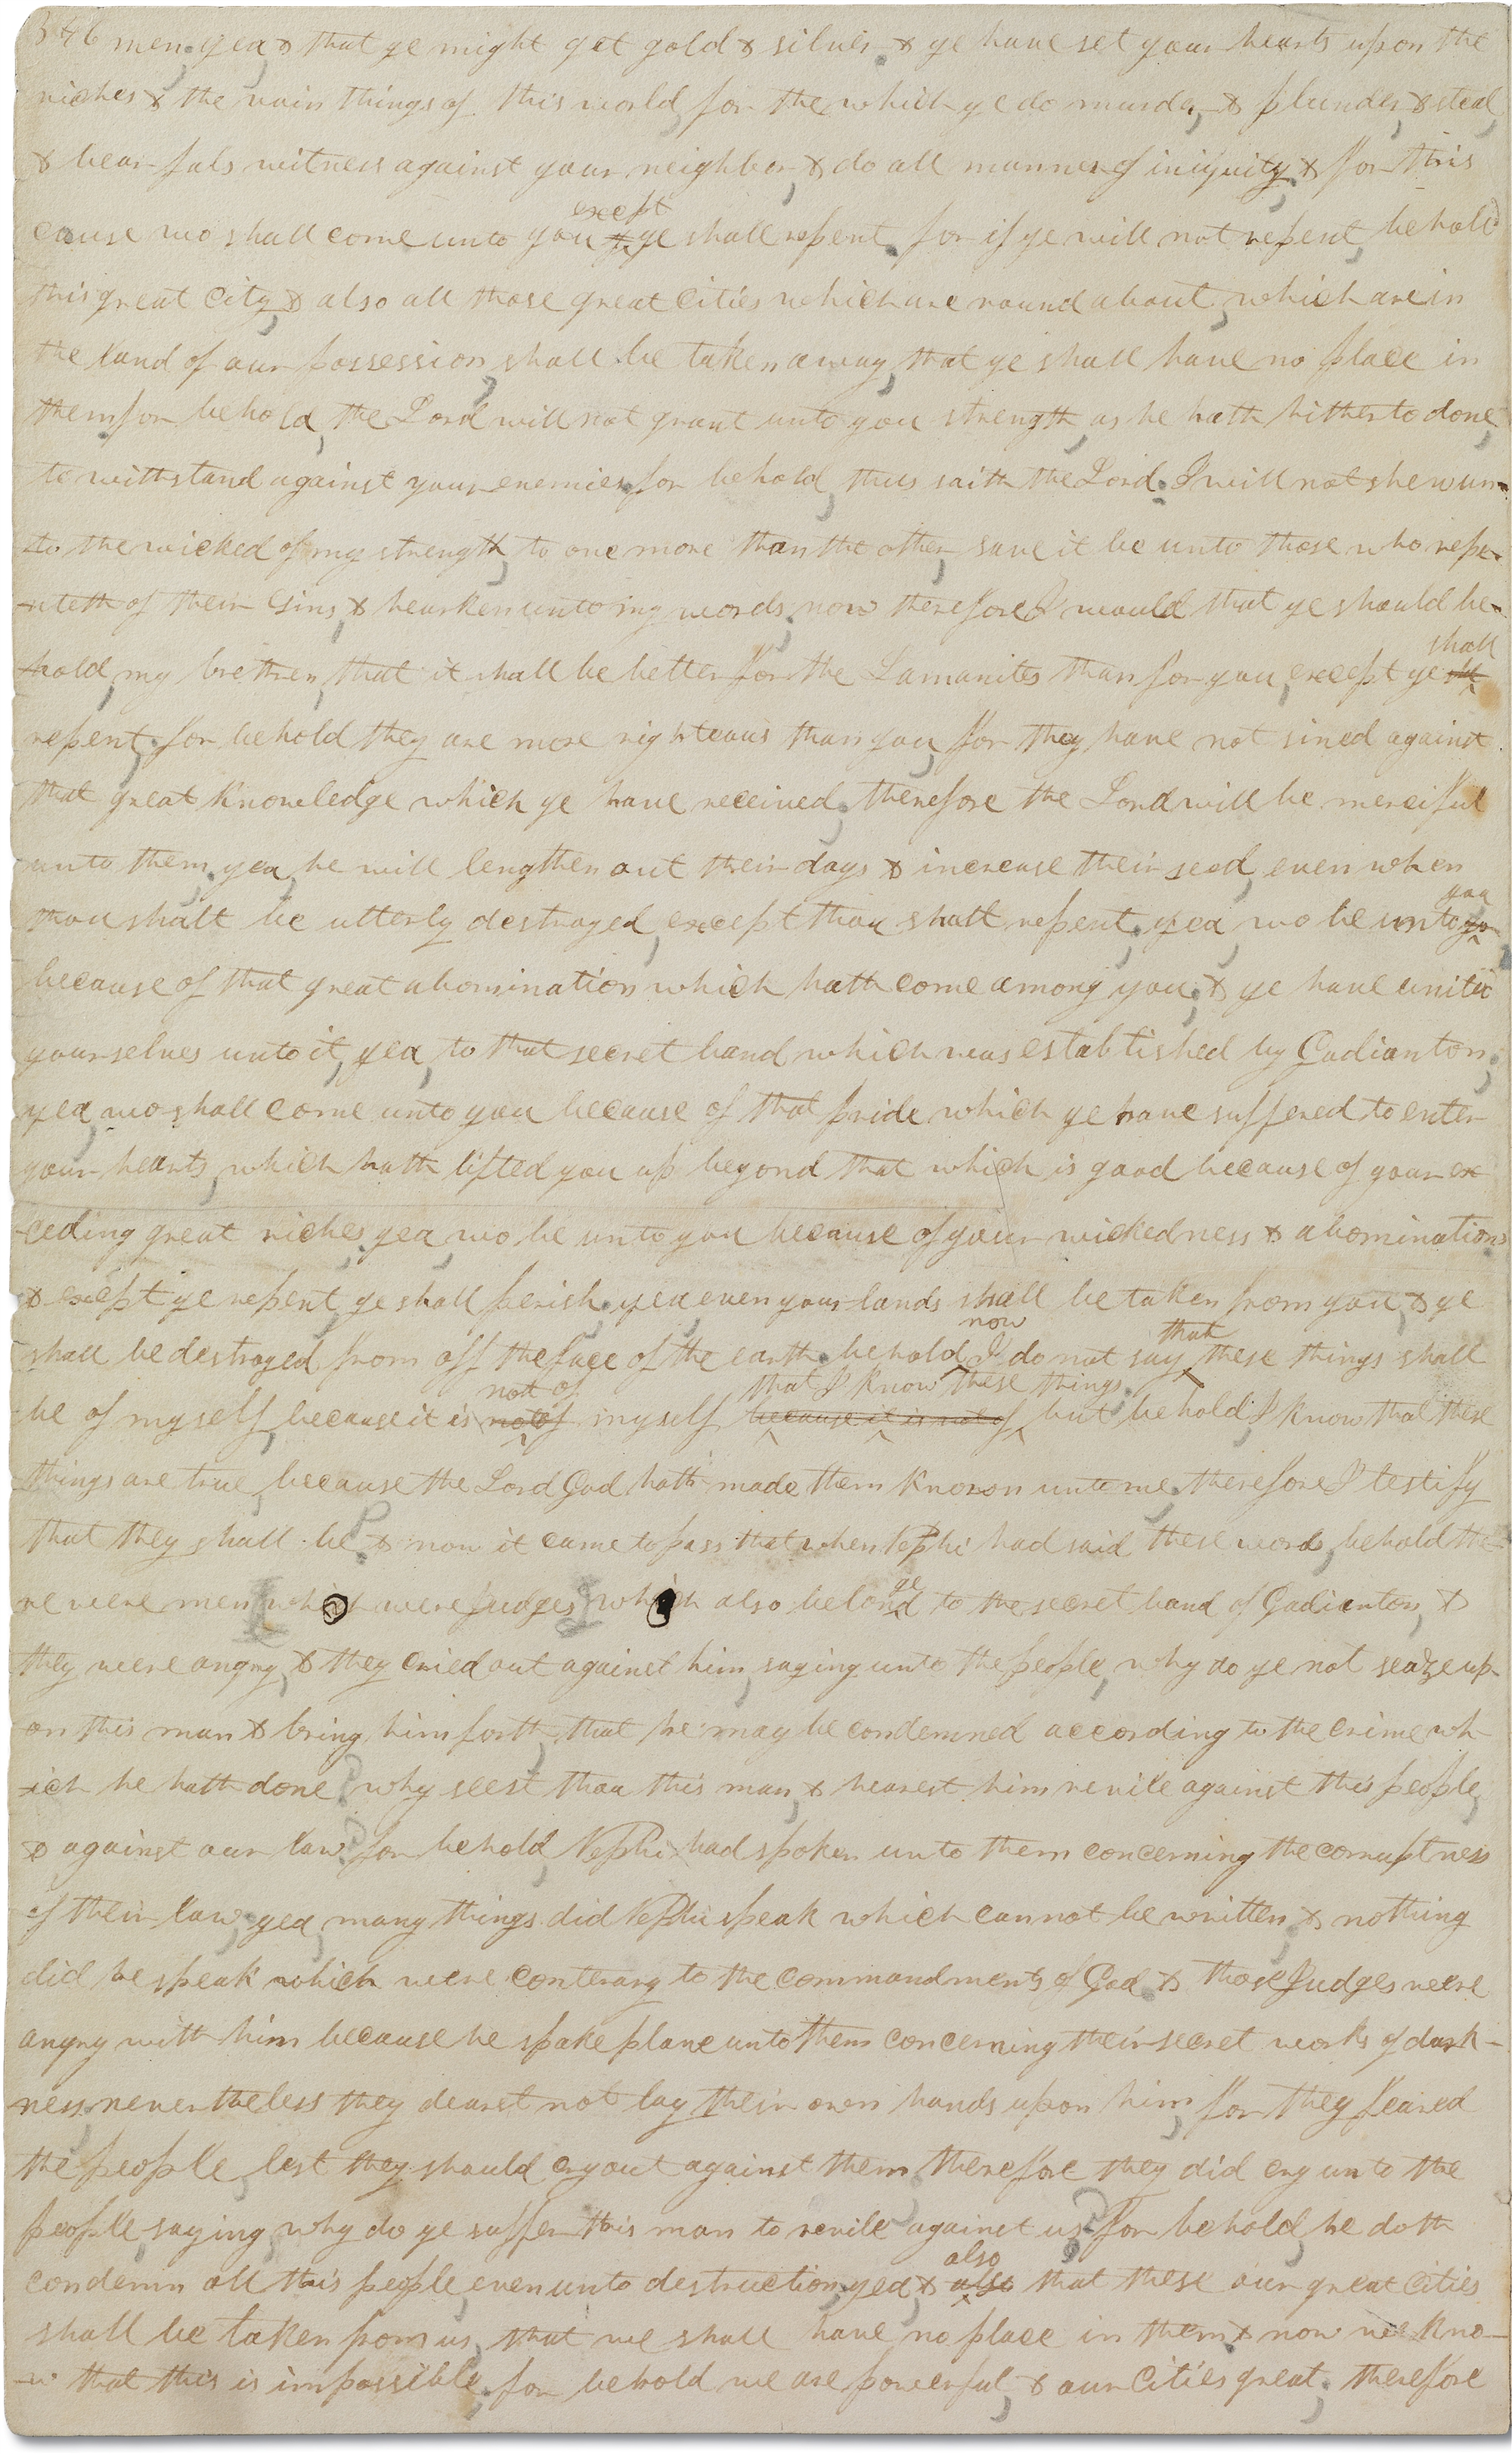 346 men. yea & that ye might get gold & silver. & ye have set your hearts upon the
riches & the vain things of this world, for the which ye do murder, & plunder, & steal,
& bear fals witness against your neighbor, & do all manner of iniquity, & for this
cause wo shall come unto you except ye shall repent. for if ye will not repent, behold
this great city, & also all those great cities which are round about, which are in
the land of our possession, shall be taken away, that ye shall have no place in
them, for behold, the Lord will not grant unto you strength, as he hath hitherto done,
to withstand against your enemies, for behold, thus saith the Lord. I will not shew un-
-to the wicked of my strength, to one more than the other, save it be unto those who repe-
-nteth of their sins, & hearken unto my words. now therefore I would that ye should be-
-hold, my brethren, that it shall be better for the Lamanites than for you, except ye shall
repent. for behold they are more righteous than you, for they have not sined against
that great knowledge which ye have received, therefore the Lord will be merciful
unto them. yea, he will lengthen out their days & increase their seed, even when
thou shalt be utterly destroyed, except thou shalt repent, yea, wo be unto yo you
because of that great abomination which hath come among you; & ye have united
yourselves unto it, yea, to that secret band which was established by Gadianton;
yea, wo shall come unto you because of that pride which ye have suffered to enter
your hearts, which hath lifted you up beyond that which is good because of your ex
-ceding great riches, yea, wo be unto you because of your wickedness & abominations
& except ye repent, ye shall perish, yea even your lands shall be taken from you, & ye
shall be destroyed from off the face of the earth. behold now I do not say that these things shall
be of myself, because it is not of not of myself because it is not of that I know these things, but behold, I know that these
things are true, because the Lord God hath made them known unto me, therefore I testify
that they shall be. & now it came to pass that when Nephi had said these words, behold the-
re were men which were Judges, which also belonged to the secret band of Gadianton, &
they were angry, & they cried out against him, saying unto the people, why do ye not seaze up-
on this man & bring him forth, that he may be condemned according to the crime wh-
-ich he hath done? why seest thou this man, & hearest him revile against this people,
& against our law? for behold, Nephi had spoken unto them concerning the corruptness
of their law, yea, many things did Nephi speak which cannot be written, & nothing
did he speak which were conterary to the commandments of God. & those Judges were
angry with him because he spake plane unto them concerning their secret works of dark-
ness, nevertheless they dearst not lay their own hands upon him, for they feared
the people, lest they should cry out against them. therefore they did cry unto the
people, saying, why do ye suffer this man to revile against us? for behold, he doth
condemn all this people, even unto destruction, yea, & also also that these our great cities
shall be taken from us, that we shall have no place in them, & now we kno-
-w that this is impossible, for behold we are powerful, & our cities great. therefore